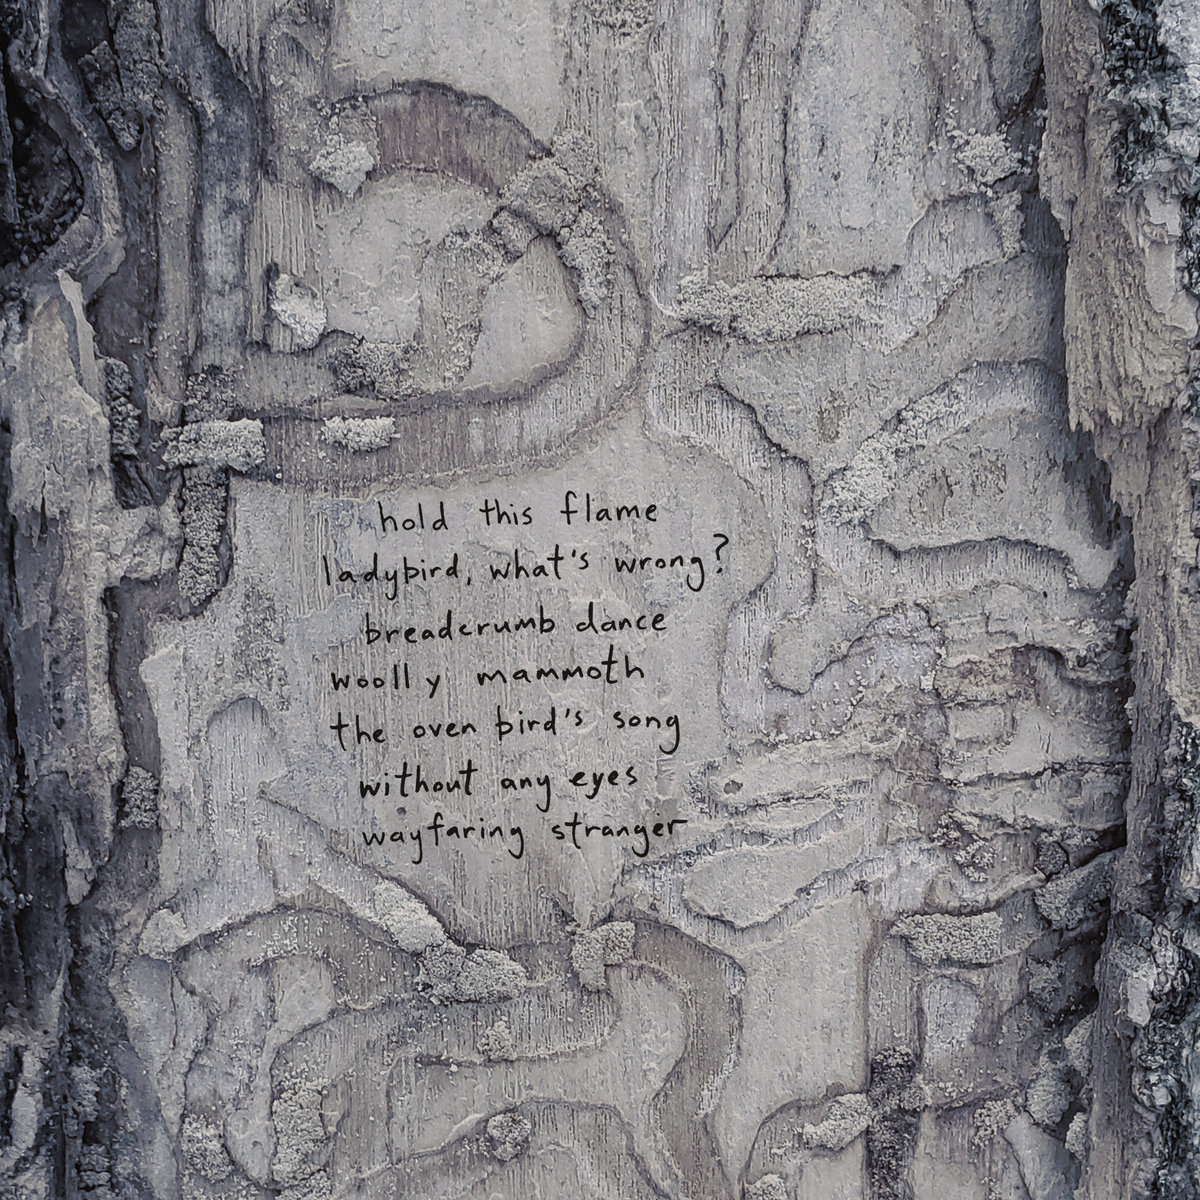 hold this flame
ladybird, what's wrong?
breadcrumb dance
woolly mammoth
the oven bird's song
without any eyes
wayfaring stranger